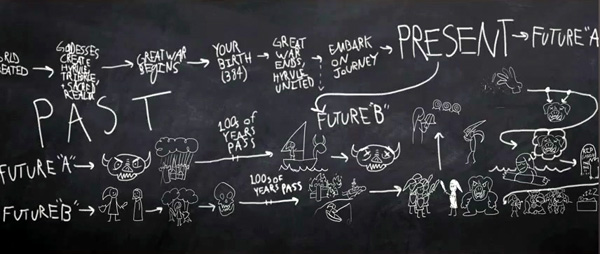 ORLD
EATED
GODESSES
CREATE
HYRULE
+ SACRED
REALM
GREAT WAR
BEGINS
YOUR
BIRTH
(384)
GREAT
WAR
ENDS,
HYRULE
UNITED
EMBARK
ON
JOURNEY
PRESENT
FUTURE "A"
PAST
FUTURE "B"
FUTURE "A"
100s OF
YEARS
PASS
FUTURE "B"
100s OF
YEARS PASS